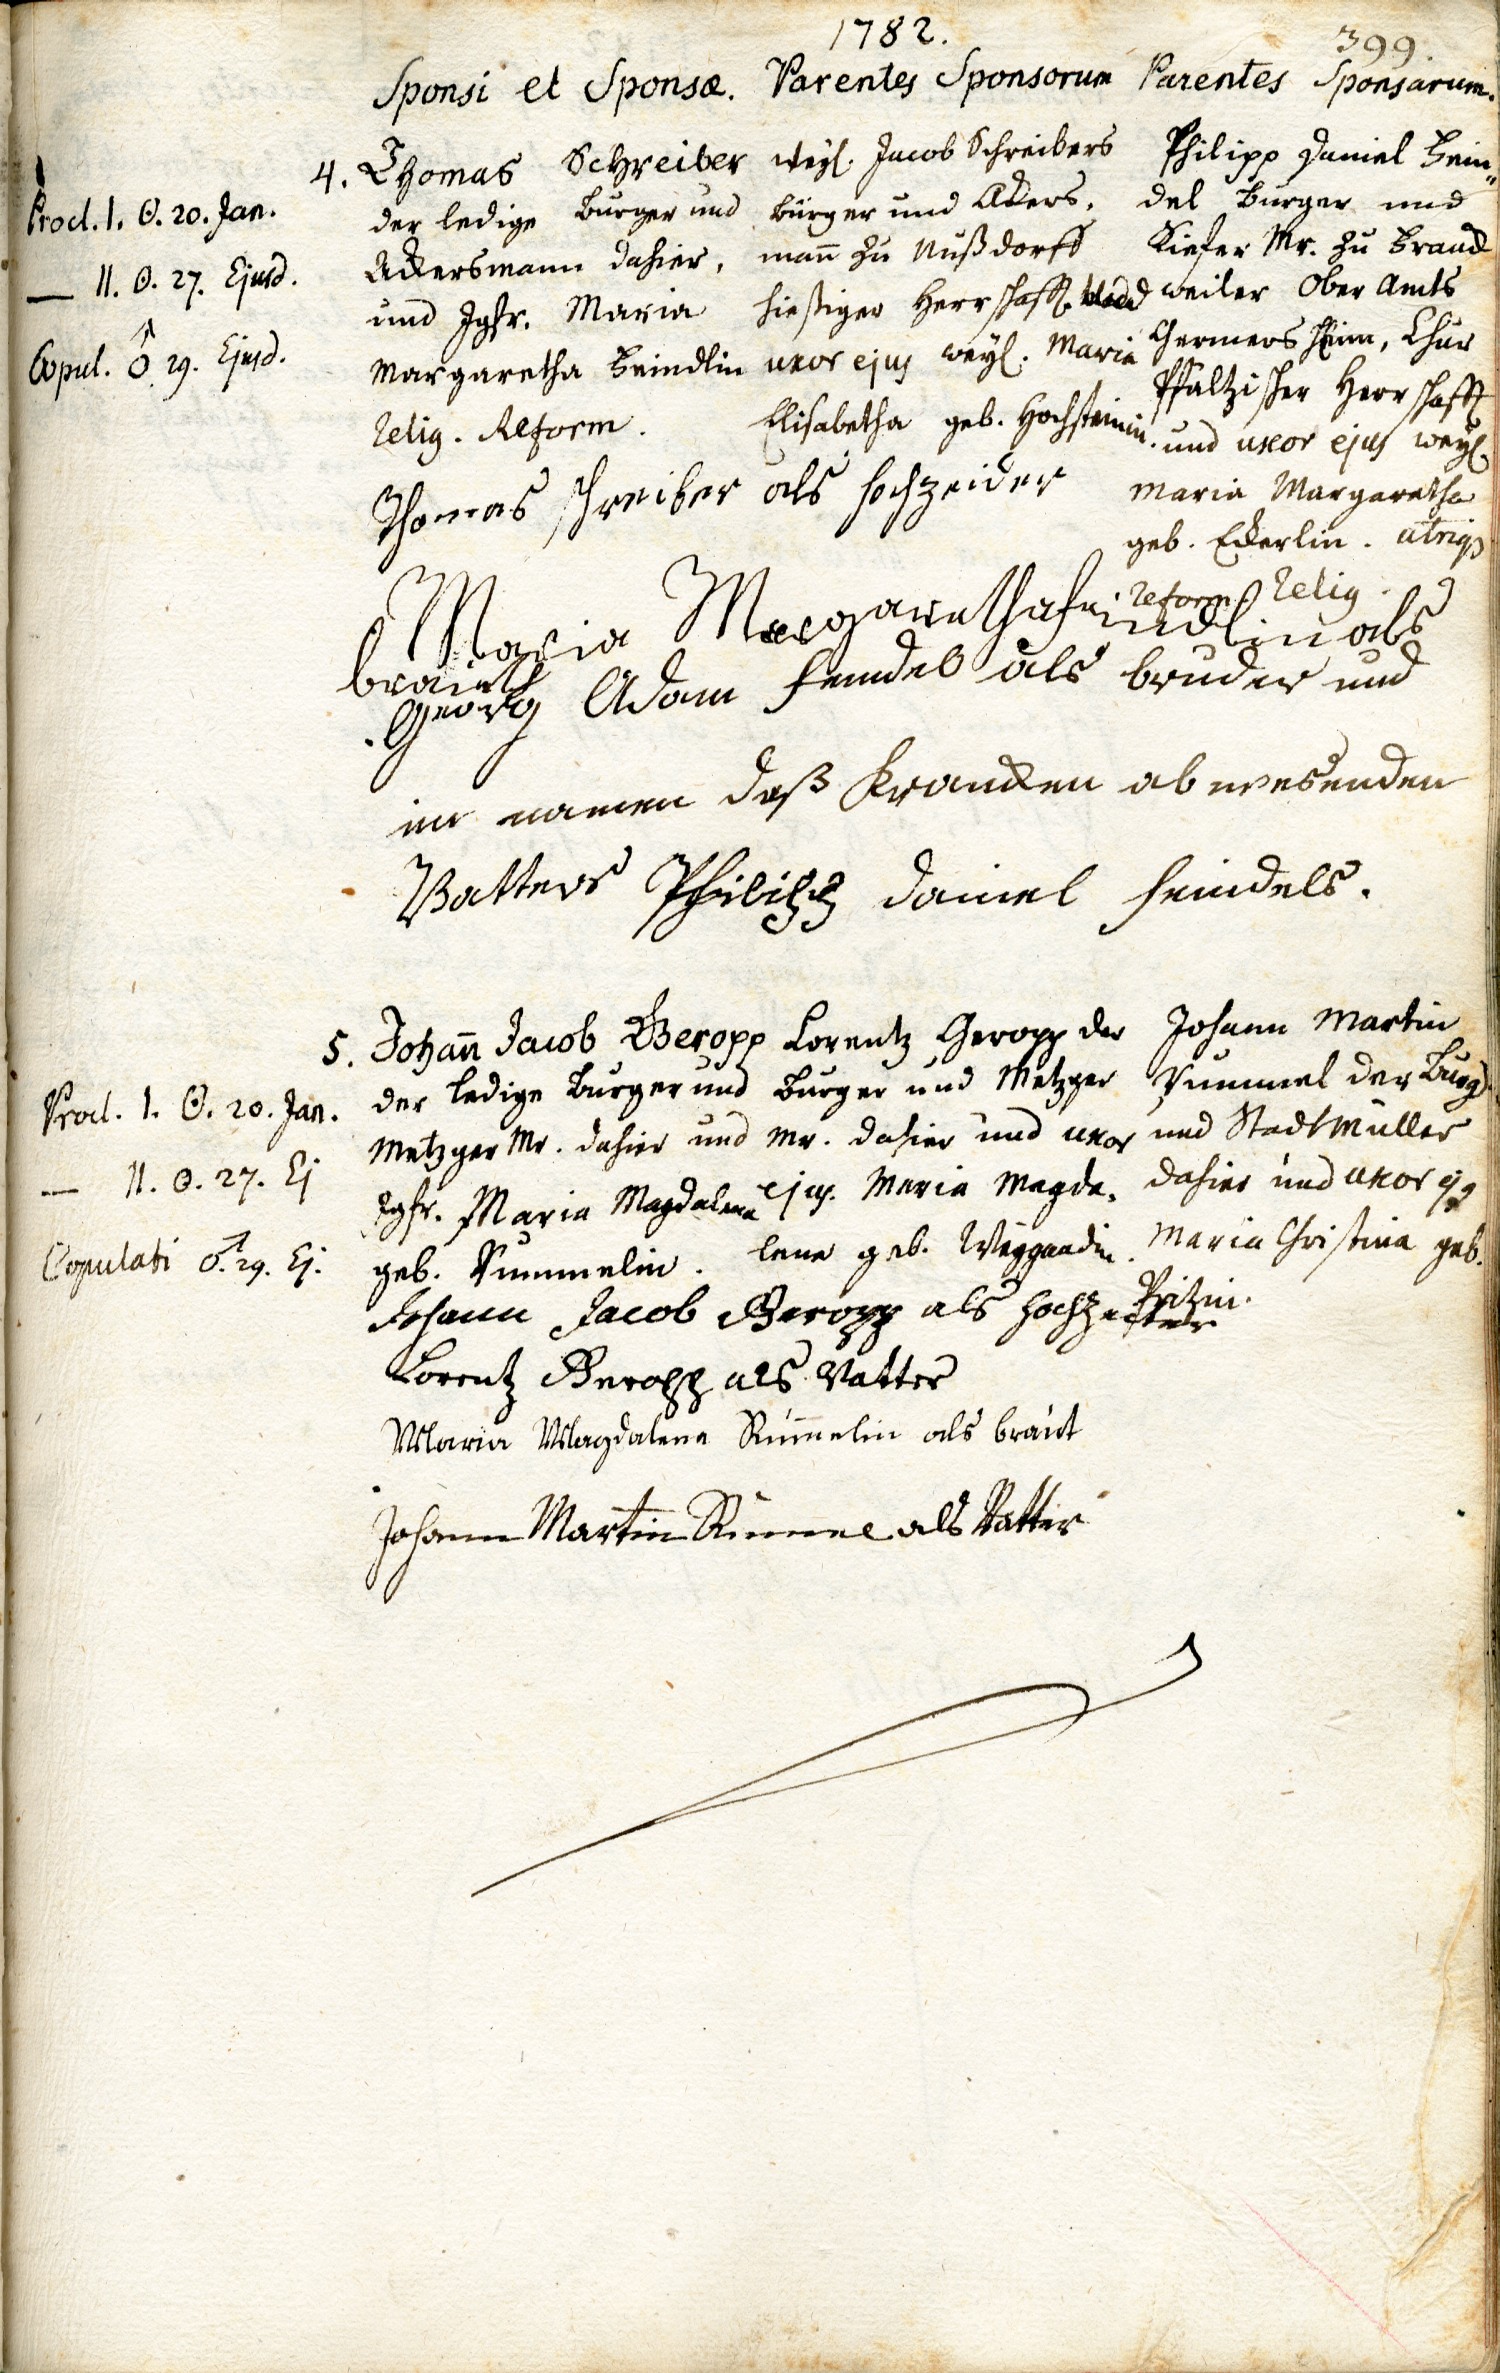 1782.
399.
Sponsi et Sponsæ. Parentes Sponsorum Parentes Sponsarum.
Procl. I. ☉. 20. Jan.
— II. ☉. 27. Ejusd.
Copul. ♂ 29. Ejusd.
4. Thomas Schreiber
der ledige Burger und
Ackersmann dahier,
und Jgfr. Maria
Margaretha Beindlin
relig. Reform.
weyl. Jacob Schreibers
bürger und Ackers,
mañ zu Nußdorff
hießiger Herrschafft
uxor ejus weyl. Maria
Elisabetha geb. Hochsteinin.
Philipp Daniel Bein„
del Burger und
Kiefer Mr. zu Brand
weiler Ober Amts
Germersheim, Chur
Pfaltzischer Herrschafft
und uxor ejus weyl.
Maria Margaretha
geb. Eckerlin. utriqs
reform. Relig.
Thomas schreiber als hochzeider
Maria Margaretha feindlin als
braith
Georg Adam feindel als bruder und
im namen daß Krancken abwesenden
Vatters Philipp daniel feindels.
Procl. I. ☉. 20. Jan.
— II. ☉. 27. Ej
Copulati ♂. 29. Ej.
5. Johañ Jacob Geropp
der ledige Burger und
Metzger Mr. dahier und
Jgfr. Maria Magdalena
geb. Rummelin.
Lorentz Geropp der
Burger und Metzger
Mr. dahier und uxor
ejus. Maria Magda,
lena geb. Weygandin.
Johann Martin
Rummel der Burger
und Stadtmüller
dahier und uxor ejs
Maria Christina geb.
Pritzin.
Johann Jacob Geropp als hochzeiter
Lorentz Geropp als Vatter
Maria Magdalena Rüm̄elin als braut
Johann Martin Rummel als Vatter